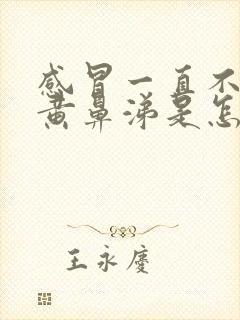 感冒一直不
黄鼻涕是怎
王永庆